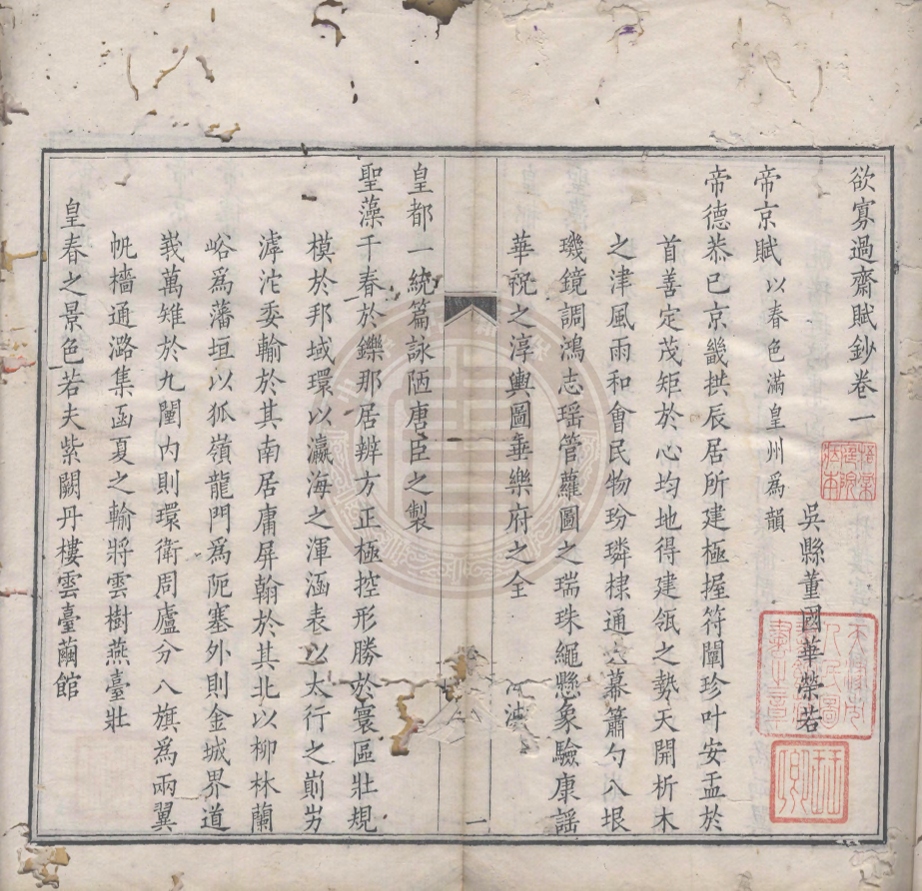 欲寡過齋賦鈔卷一
吳縣董國華榮若
帝京賦以春色滿皇州為韻
帝德恭已京畿拱辰居所建極握符闡珍叶安盂於
首善定茂矩於心均地得建瓴之勢天開析木
之津風雨和會民物玢璘棣通六幕簫勺八垠
璣鏡調鴻志瑶管蘿圖之瑞珠繩懸象驗康謡
華祝之淳輿圖垂樂府之全
皇都一統篇詠陋唐臣之製
聖藻千春於鑠那居辨方正極控形勝於寰區壯規
模於邦域環以瀛海之渾涵表以太行之崱屴
滹沱委輸於其南居庸屏翰於其北以柳林蘭
峪爲藩垣以狐嶺龍門爲阨塞外則金城界道
峩萬雉於九闉内則環衛周廬分八旗爲兩翼
帆檣通潞集函夏之輸將雲樹燕臺壯
皇春之景色若夫紫闕丹樓雲臺繭館
一